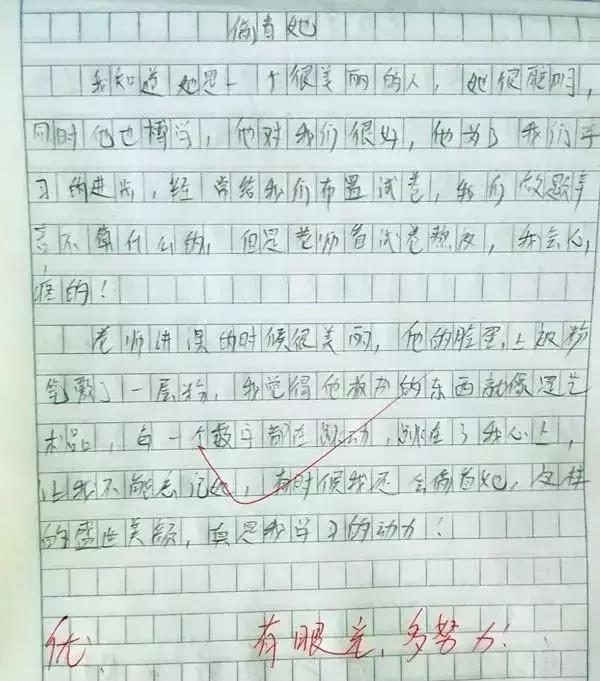 偷看她
我知道她是一个很美丽的人，她很聪明，
同时他也博学，他对我们很好，他为了我们学
习的进步，经常给我们布置试卷，我们做题辛
苦不算什么的，但是老师看试卷熬夜，我会心
疼的！
老师讲课的时候很美丽，他的脸蛋上被粉
笔敷了一层粉，我觉得他板书的东西就像是艺
术品，每一个数字都在跳动，跳在了我心上，
让我不能忘记她，有时候我还会偷看她，这样
的盛世美颜，真是我学习的动力！
优 有眼光，多努力！